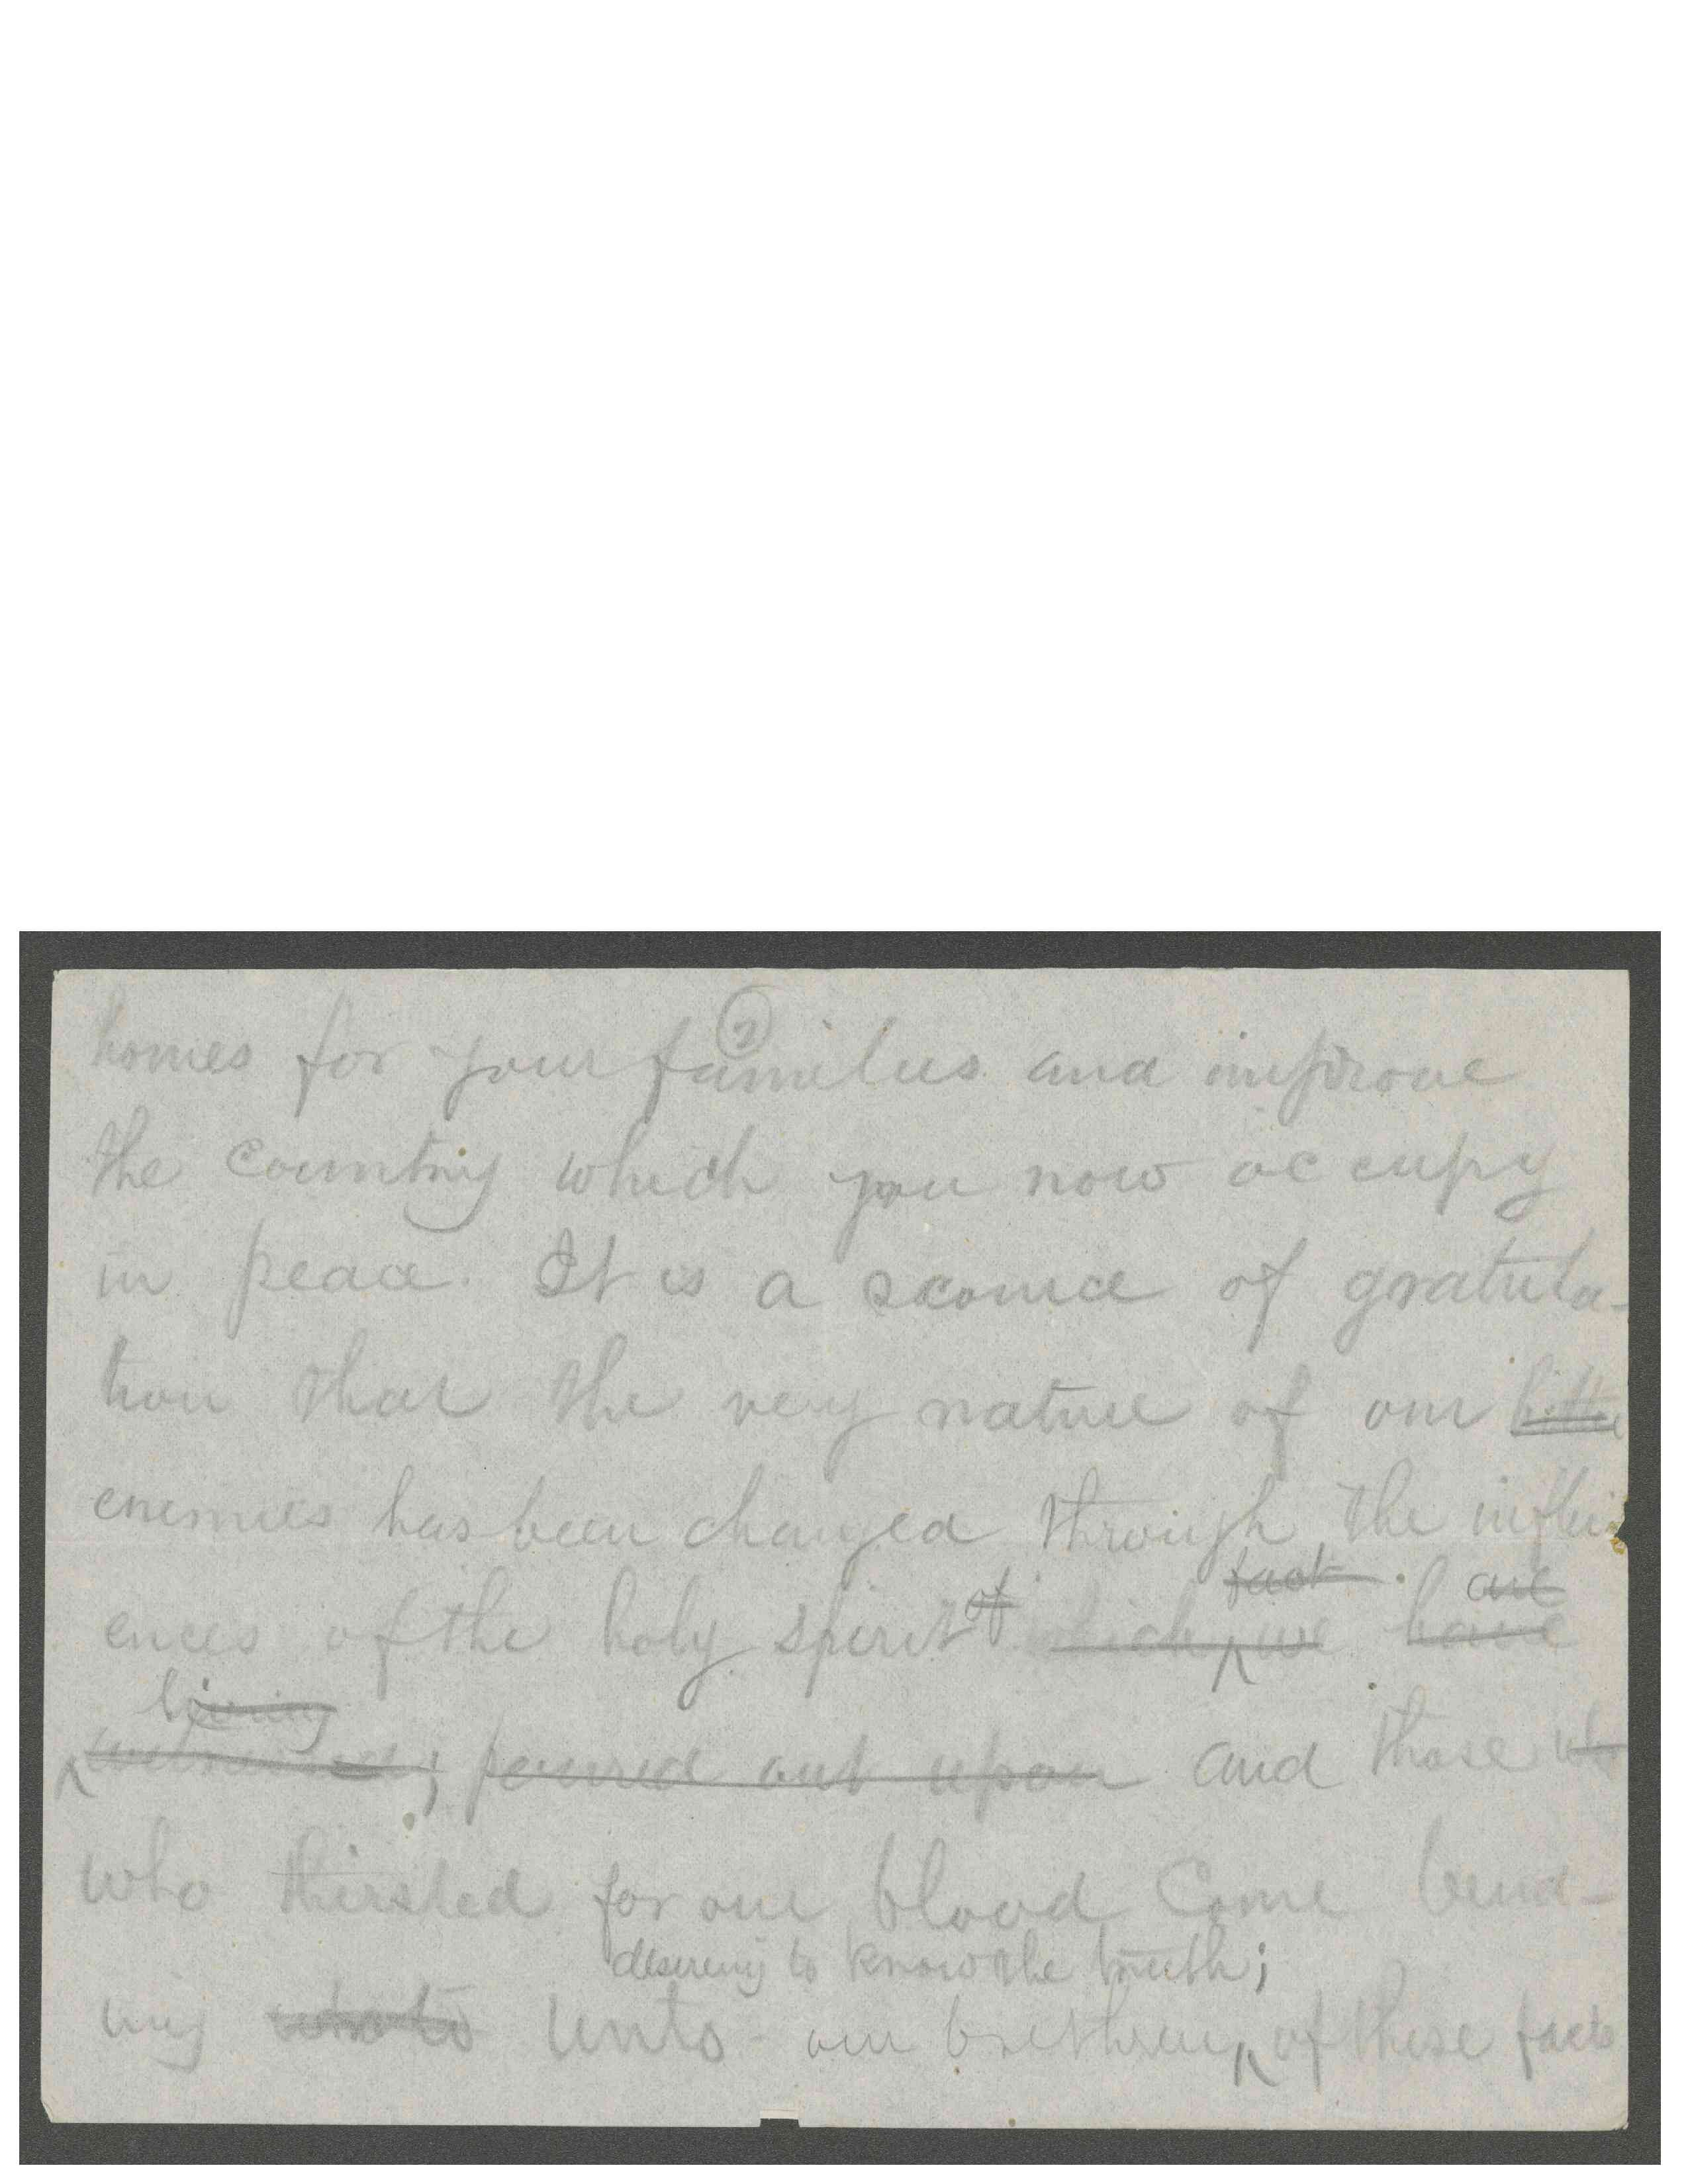 2
homes for your families and improve
the country which you now occupy
in peace. It is a scource of gratula-
tion that the very nature of our bitter
enemies has been changed through the influ
fact are
ences of the holy spirit of which we have
living
witnessed; poured out upon and those who
who thirsted for our blood Come bend-
desireing to know the truth;
ing unto our brethren, of these facts